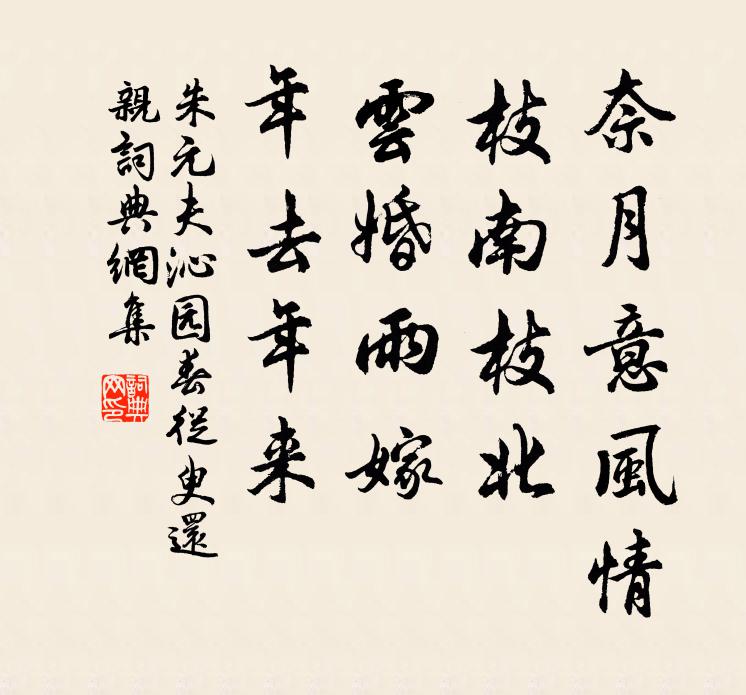 奈月意風情
枝南枝北
雲婚雨嫁
年去年来
朱元夫沁园春從吏還
親詞典網集
詞典网印